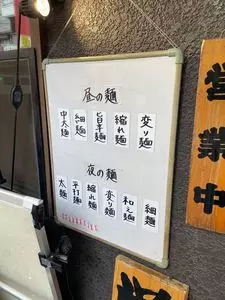 昼の麺
中太麺
細麺
旨辛麺
縮れ麺
変り麺
夜の麺
太麺
平打麺
縮れ麺
変り麺
和え麺
細麺
営業中